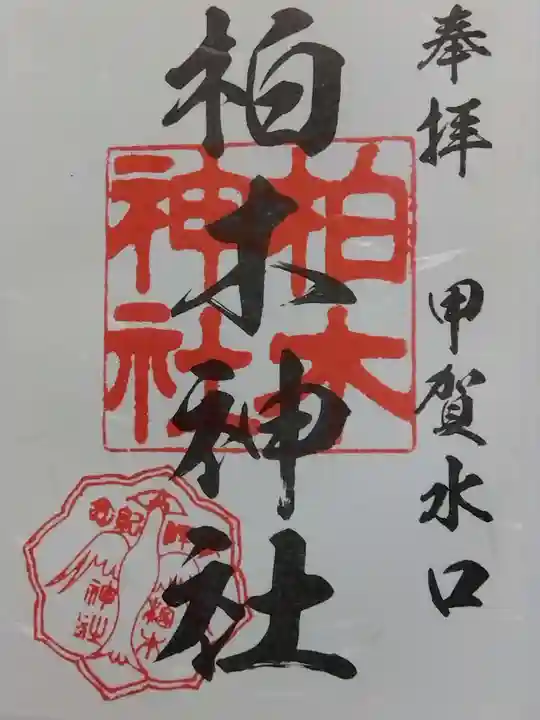 奉拝 甲賀水口
柏木神社
柏木
神社
柏木
神社